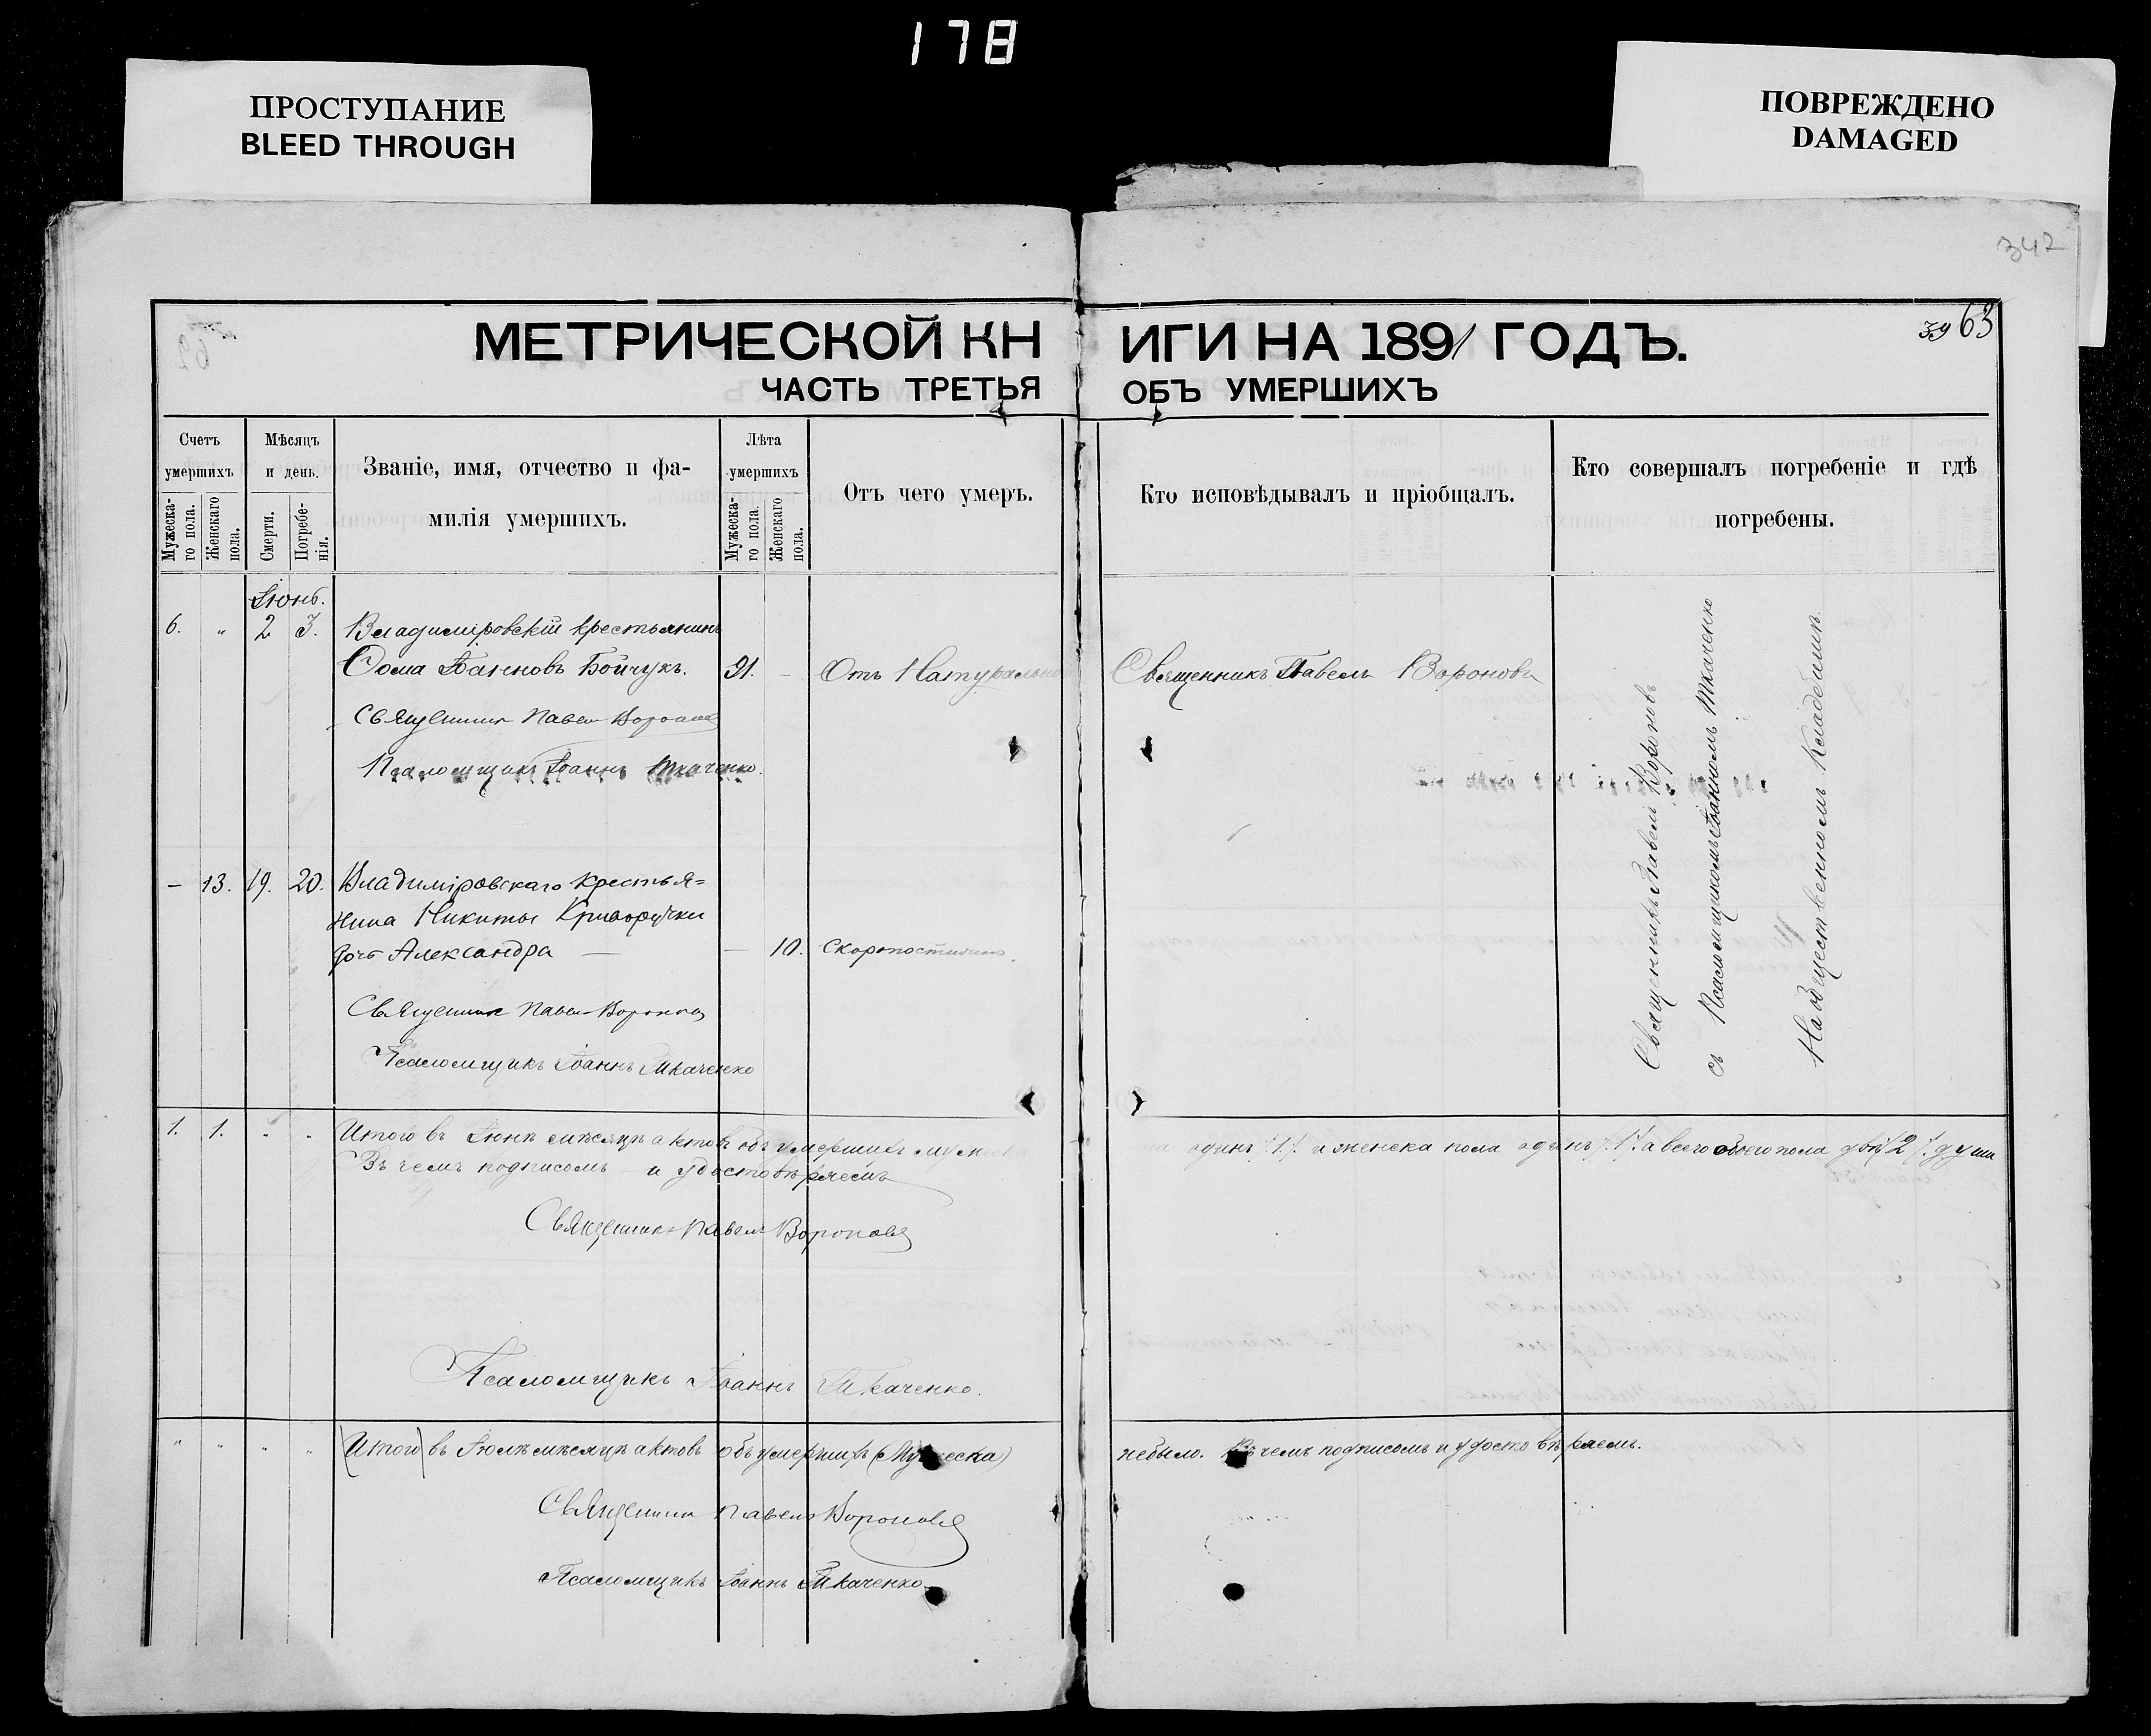 178
ПРОСТУПАНИЕ
BLEED THROUGH
ПОВРЕЖДЕНО
DAMAGED
342
МЕТРИЧЕСКОЙ КНИГИ НА 1891 ГОДЪ.
39 63
ЧАСТЬ ТРЕТЬЯ ОБЪ УМЕРШИХЪ
Счетъ умершихъ
Мужеска-го пола.
Женскаго пола.
Мѣсяцъ и день.
Смерти.
Погребе-нія.
Званіе, имя, отчество и фа-
милія умершихъ.
Лѣта умершихъ
Мужеска-го пола.
Женскаго пола.
Отъ чего умеръ.
Кто исповѣдывалъ и пріобщалъ.
Кто совершалъ погребеніе и гдѣ
погребены.
Іюнь.
6. „ 2 3. Владиміровскій крестьянинъ
Ѳома Бойчукъ. 91. - Отъ Натуральной Священникъ Павелъ Вороновъ
Священникъ Павелъ Вороновъ
Псаломщикъ Іоаннъ Ткаченко.
Священникъ Павелъ Вороновъ
съ Псаломщикомъ Іоанномъ Ткаченко
На Общественномъ Кладбищѣ.
- 13. 19. 20. Владиміровскаго крестья=
нина Никиты Криворучки
дочь Александра — — 10. Скоропостижно.
Священникъ Павелъ Вороновъ
Псаломщикъ Іоаннъ Ткаченко
1. 1. „ „ Итого въ Іюнѣ мѣсяцѣ актовъ объ умершихъ одинъ /1/. и женска пола одинъ /.1/. а всего обоего пола двѣ /2/. души
Въ чемъ подписомъ и удостовѣряемъ
Священникъ Павелъ Вороновъ
Псаломщикъ Іоаннъ Ткаченко.
„ „ „ „ (Итого) въ Іюлѣ мѣсяцѣ актовъ объ умершихъ (Мужеска) небыло. Въ чемъ подписомъ и удостовѣряемъ.
Священникъ Павелъ Вороновъ
Псаломщикъ Іоаннъ Ткаченко